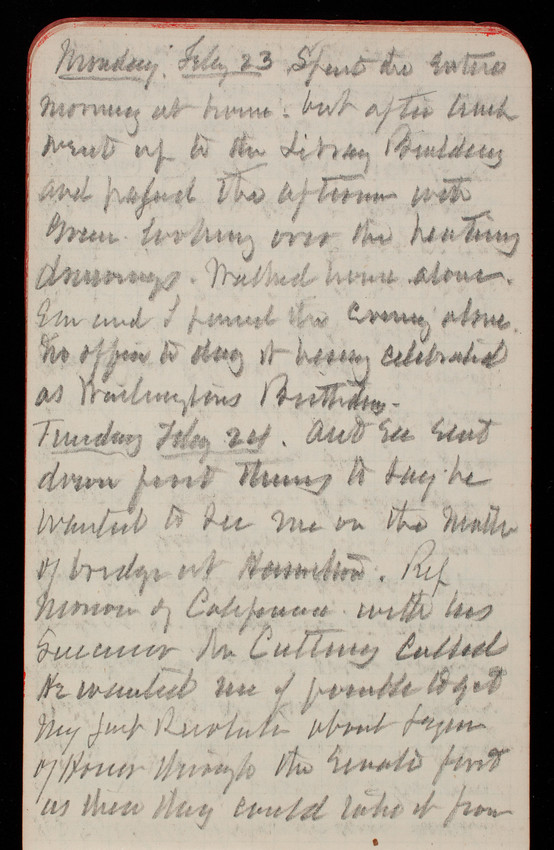 Monday, Feby 23 Spent the entire
morning at home. but after lunch
went up to the Library Building
and passed the afternoon with
Green looking over the heating
drawings. Walked home alone.
Em and I passed the Evening alone.
No office to day it being celebrated
as Washingtons Birthday.
Tuesday Feby 24. Asst Sec sent
down first thing to say he
wanted to see me on the matter
of bridge at. Rep
Morrow of California with his
successor Mr Cutting called
He wanted me if possible to get
my Joint Resolution about
of Honor through the Senate first
as then they could take it from